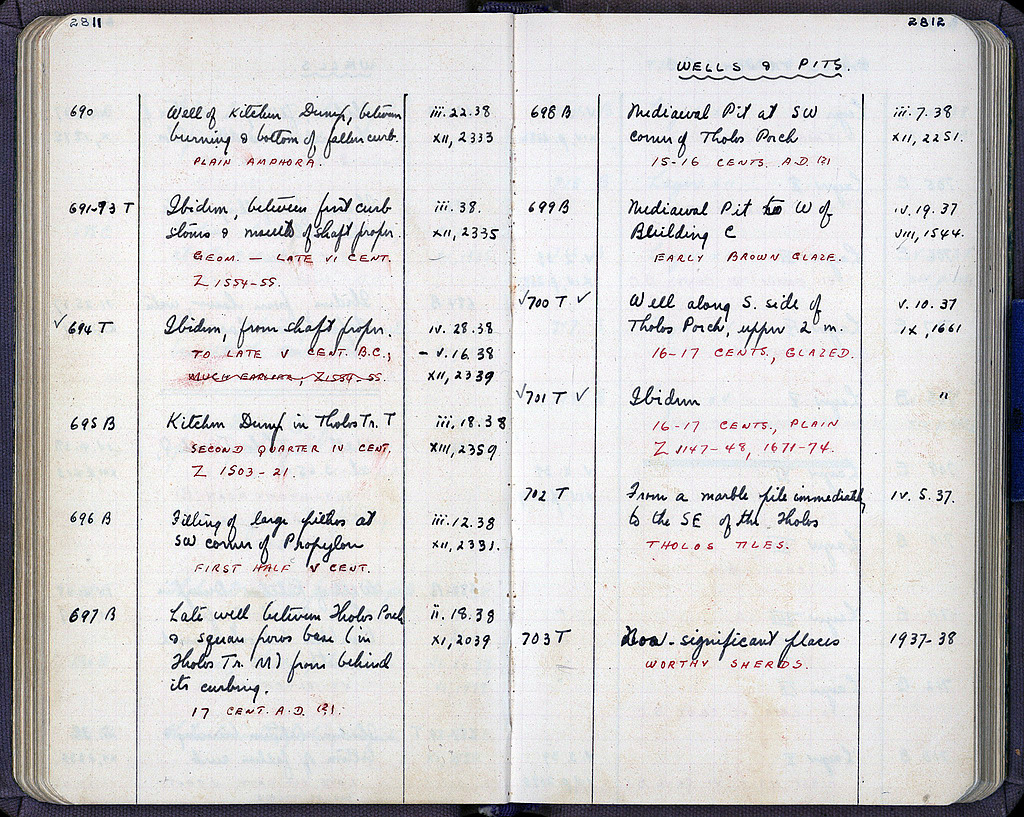 2811
690 Well of Kitchen Dump, between iii.22.38
burning & bottom of fallen curb. XII, 2333
PLAIN AMPHORA.
691-93 T Ibidem, between first curb iii.38.
stones & mouth of shaft proper. XII, 2335
GEOM. — LATE VI CENT.
Z 1554-55.
✓ 694 T Ibidem, from shaft proper. iv.28.38
TO LATE V CENT. B.C., - v.16.38
MUCH EARLIER, Z1554-55. XII, 2339
695 B Kitchen Dump in Tholos Tr. T iii.18.38
SECOND QUARTER IV CENT. XIII, 2359.
Z 1503-21
696 B Filling of large pithos at iii.12.38
SW corner of Propylon XII, 2331.
FIRST HALF V CENT.
697 B Late well between Tholos Porch ii.18.38
& square poros base (in XI, 2039
Tholos Tr. M) from behind
its curbing.
17 CENT. A.D. (?).
2812
WELLS & PITS.
698 B Mediaeval Pit at SW iii.7.38
corner of Tholos Porch XII, 2251.
15-16 CENTS. A.D. (?)
699 B Mediaeval Pit to W of iv.19.37
Building C VIII, 1544.
EARLY BROWN GLAZE.
✓700 T ✓ Well along S. side of v.10.37
Tholos Porch, upper 2 m. IX, 1661
16-17 CENTS., GLAZED.
✓701 T ✓ Ibidem "
16-17 CENTS., PLAIN
Z 1147-48, 1671-74.
702 T From a marble pile immediately iv.5.37.
to the SE of the Tholos
THOLOS TILES.
703 T Non-significant places 1937-38
WORTHY SHERDS.